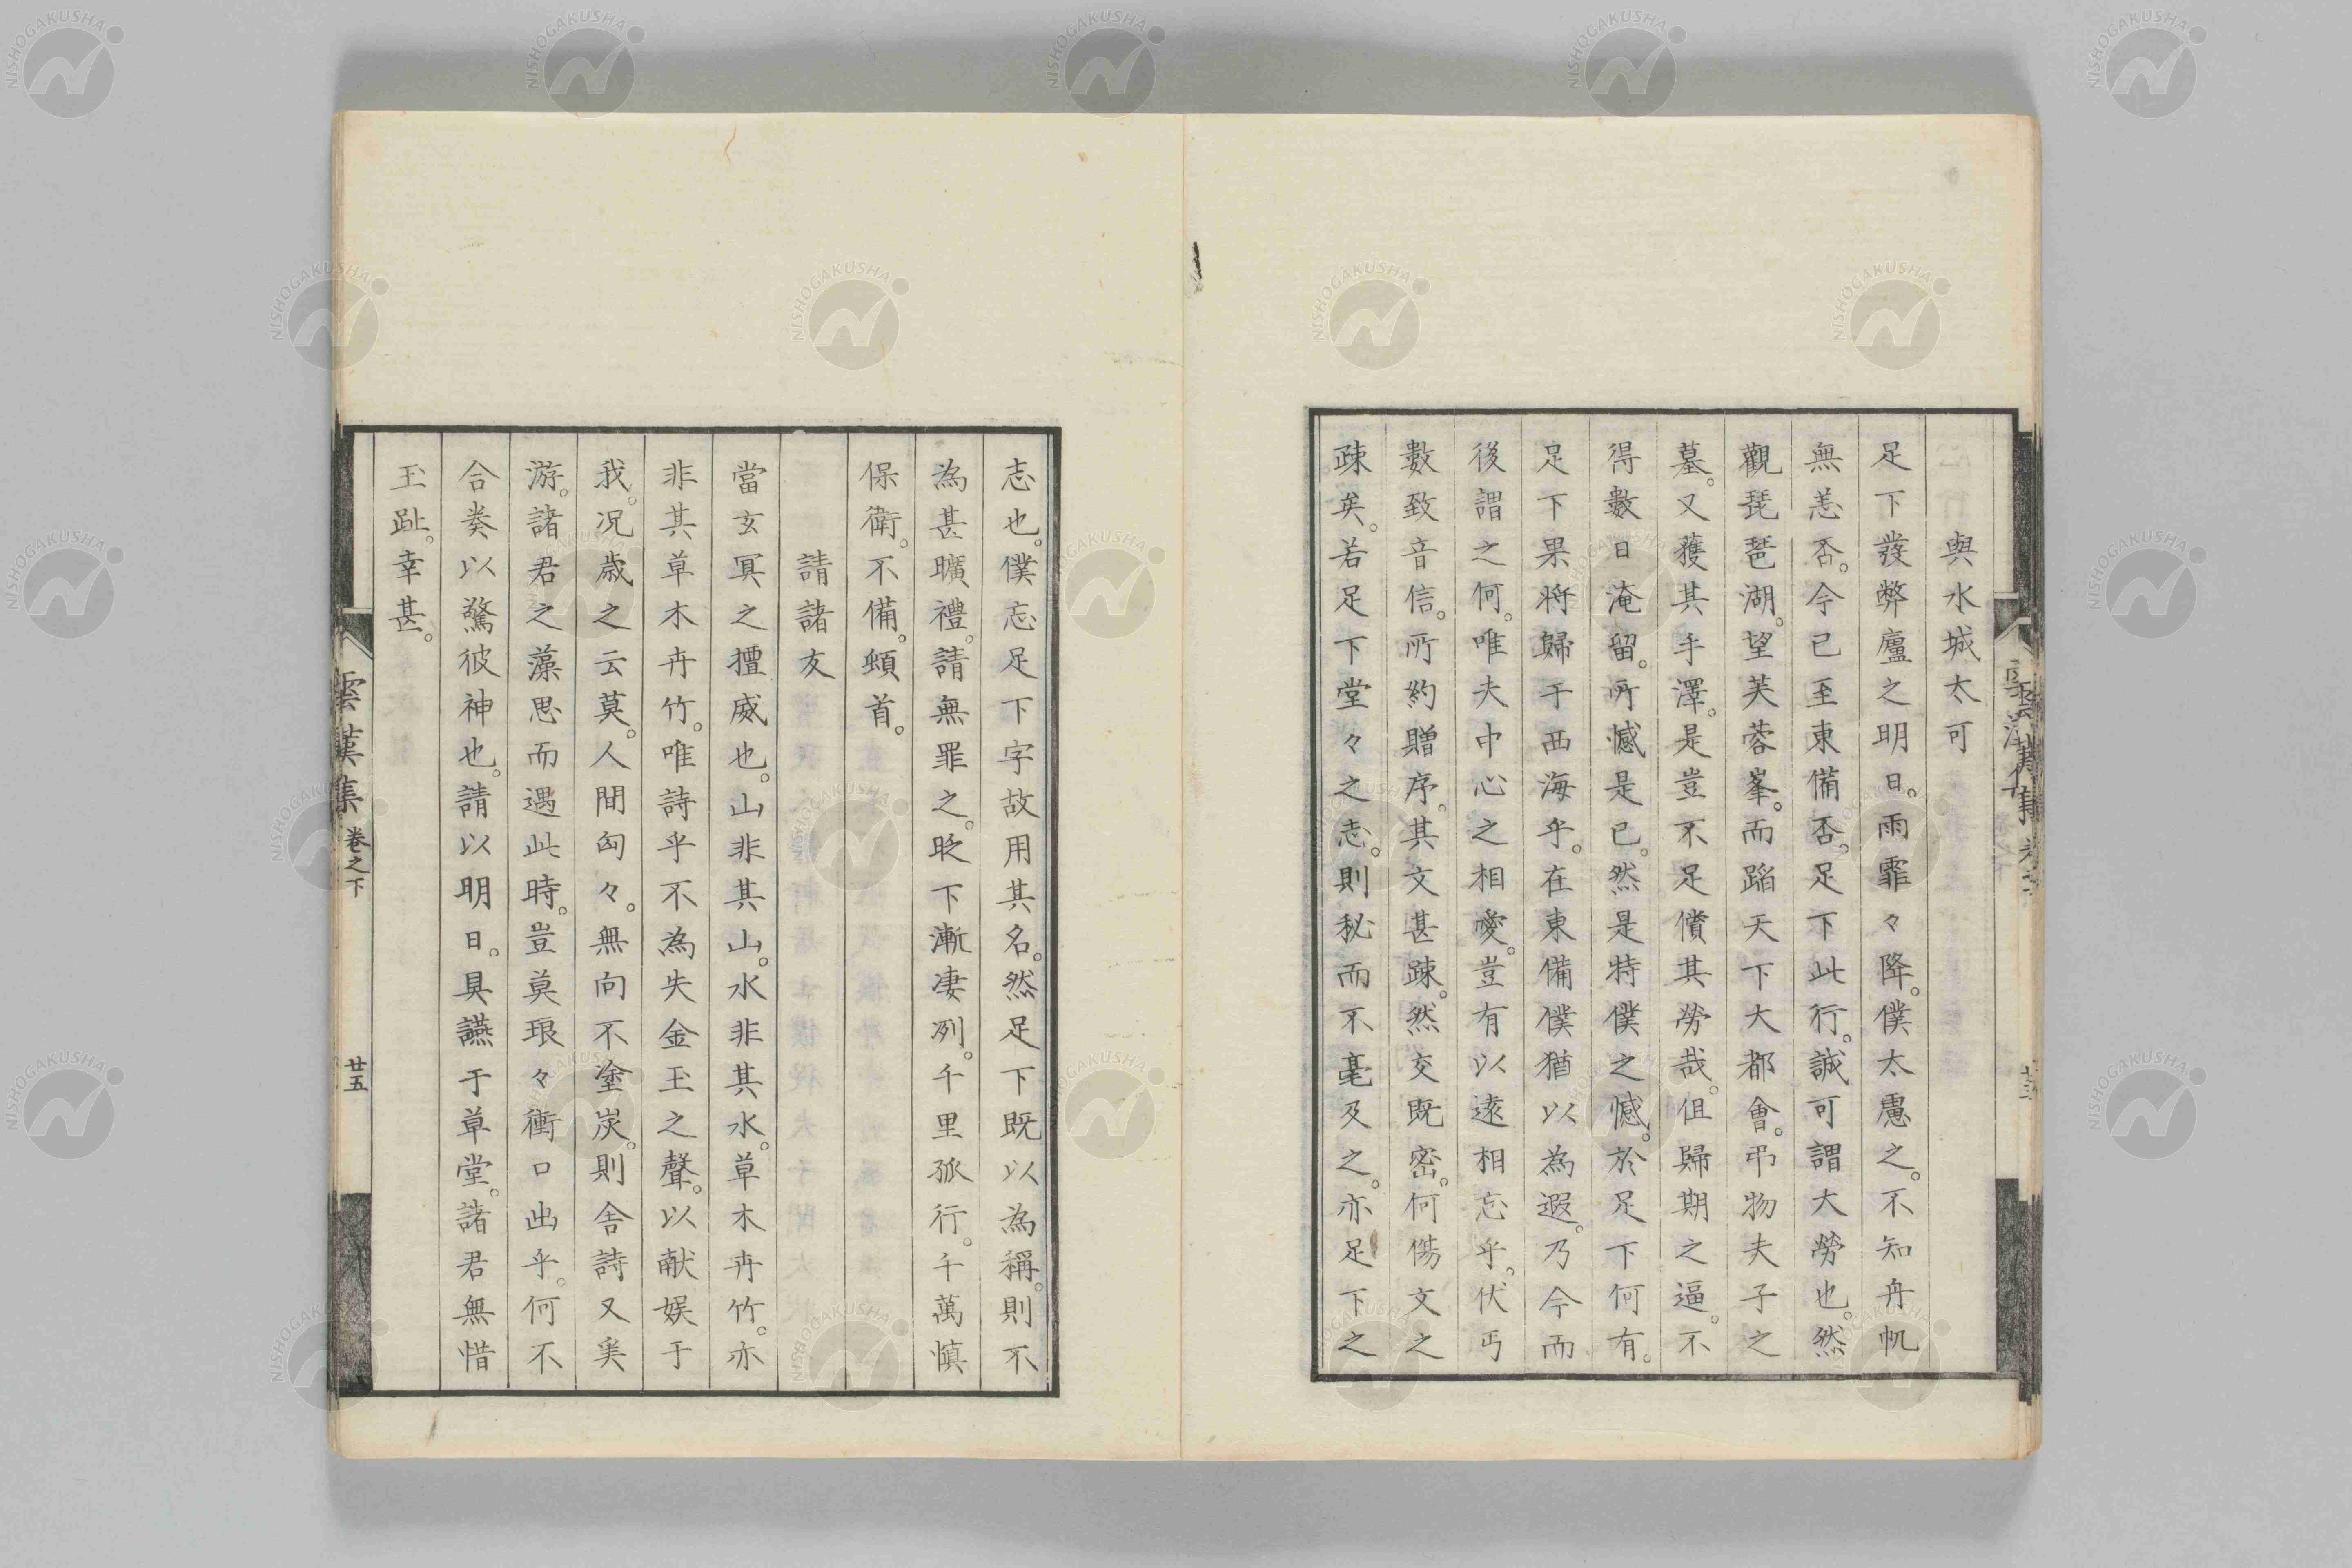 與水城太可
足下發弊廬之明日。雨霏々降。僕太慮之。不知舟帆
無恙否。今已至東備否。足下此行。誠可謂大勞也。然
觀琵琶湖。望芙蓉峯。而蹈天下大都會。弔物夫子之
墓。又獲其手澤。是豈不足償其勞哉。但歸期之逼。不
得數日淹留。所憾是已。然是特僕之憾。於足下何有。
足下果將歸于西海乎。在東備僕猶以為遐。乃今而
後謂之何。唯夫中心之相愛。豈有以遠相忘乎。伏丐
數致音信。所約贈序。其文甚踈。然交既密。何傷文之
疎矣。若足下堂々之志。則秘而不毫及之。亦足下之
志也。僕忘足下字故用其名。然足下既以為稱。則不
為甚曠禮。請無罪之。眨下漸凄冽。千里孤行。千萬慎
保衛。不備。頓首。
請諸友
當玄冥之擅威也。山非其山。水非其水。草木卉竹。亦
非其草木卉竹。唯詩乎不為失金玉之聲。以献娯于
我。况歳之云莫。人間匈々。無向不塗炭。則舍詩又奚
游。諸君之藻思而遇此時。豈莫琅々衝口出乎。何不
合奏以驚彼神也。請以明日。具讌于草堂。諸君無惜
玉趾。幸甚。
雲漢集 卷之下 廿五
NISHOGAKUSHA